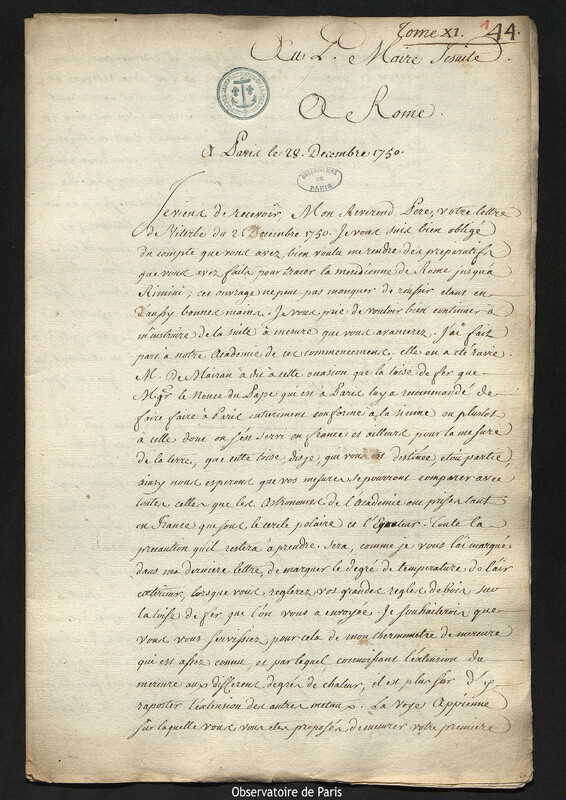 Tome XI. 1 44.
Au P. Maire Jesuite.
A Rome.
A Paris le 28. Decembre 1750.
OBSERVATOIRE DE PARIS
Je viens de recevoir, Mon Reverend Pere, votre lettre
de Viterbe du 21 Decembre 1750. Je vous suis bien obligé
du compte que vous avez bien voulu me rendre des preparatifs
que vous avez faits pour tracer la meridienne de Rome jusqu'a
Rimini; cet ouvrage ne peut pas manquer de reussir etant en
d'aussy bonnes mains. Je vous prie de vouloir bien continuer à
m'instruire de la suite à mesure que vous avancerez. J'ai fait
part à notre Academie de ces commencement, elle en a eté ravie.
M. De Mairan a dit à cette ocasion que la toise de fer que
Mgr. le Nonce du Pape qui est à Paris luy a recommandé de
faire faire à Paris entierement conforme à la sienne ou plustot
à celle dont on s'est servi en france et ailleurs pour la mesure
de la terre, que cette toise, disje, qui vous est destinée etoit partie,
ainsy nous esperons que vos mesures se pourront comparer avec
toutes celles que les Astronomes de l'Academie ont prises tant
en France que sous le cercle polaire et l'Equateur. Toute la
precaution qu'il restera à prendre sera, comme je vous l'ai marqué
dans ma derniere lettre, de marquer le degré de temperature de l'air
exterieur, lorsque vous reglerez vos grandes regles de bois sur
la toise de fer que l'on vous a envoyée. Je souhaiterois que
vous vous servissiez pour cela de mon thermometre de mercure
qui est assez connu, et par lequel connoissant l'extension du
mercure aux different degrés de chaleur, il est plus sur d'y
raporter l'extension des autres metaux. La voye Appienne
sur laquelle vous vous etes proposés de mesurer votre premiere
Observatoire de Paris